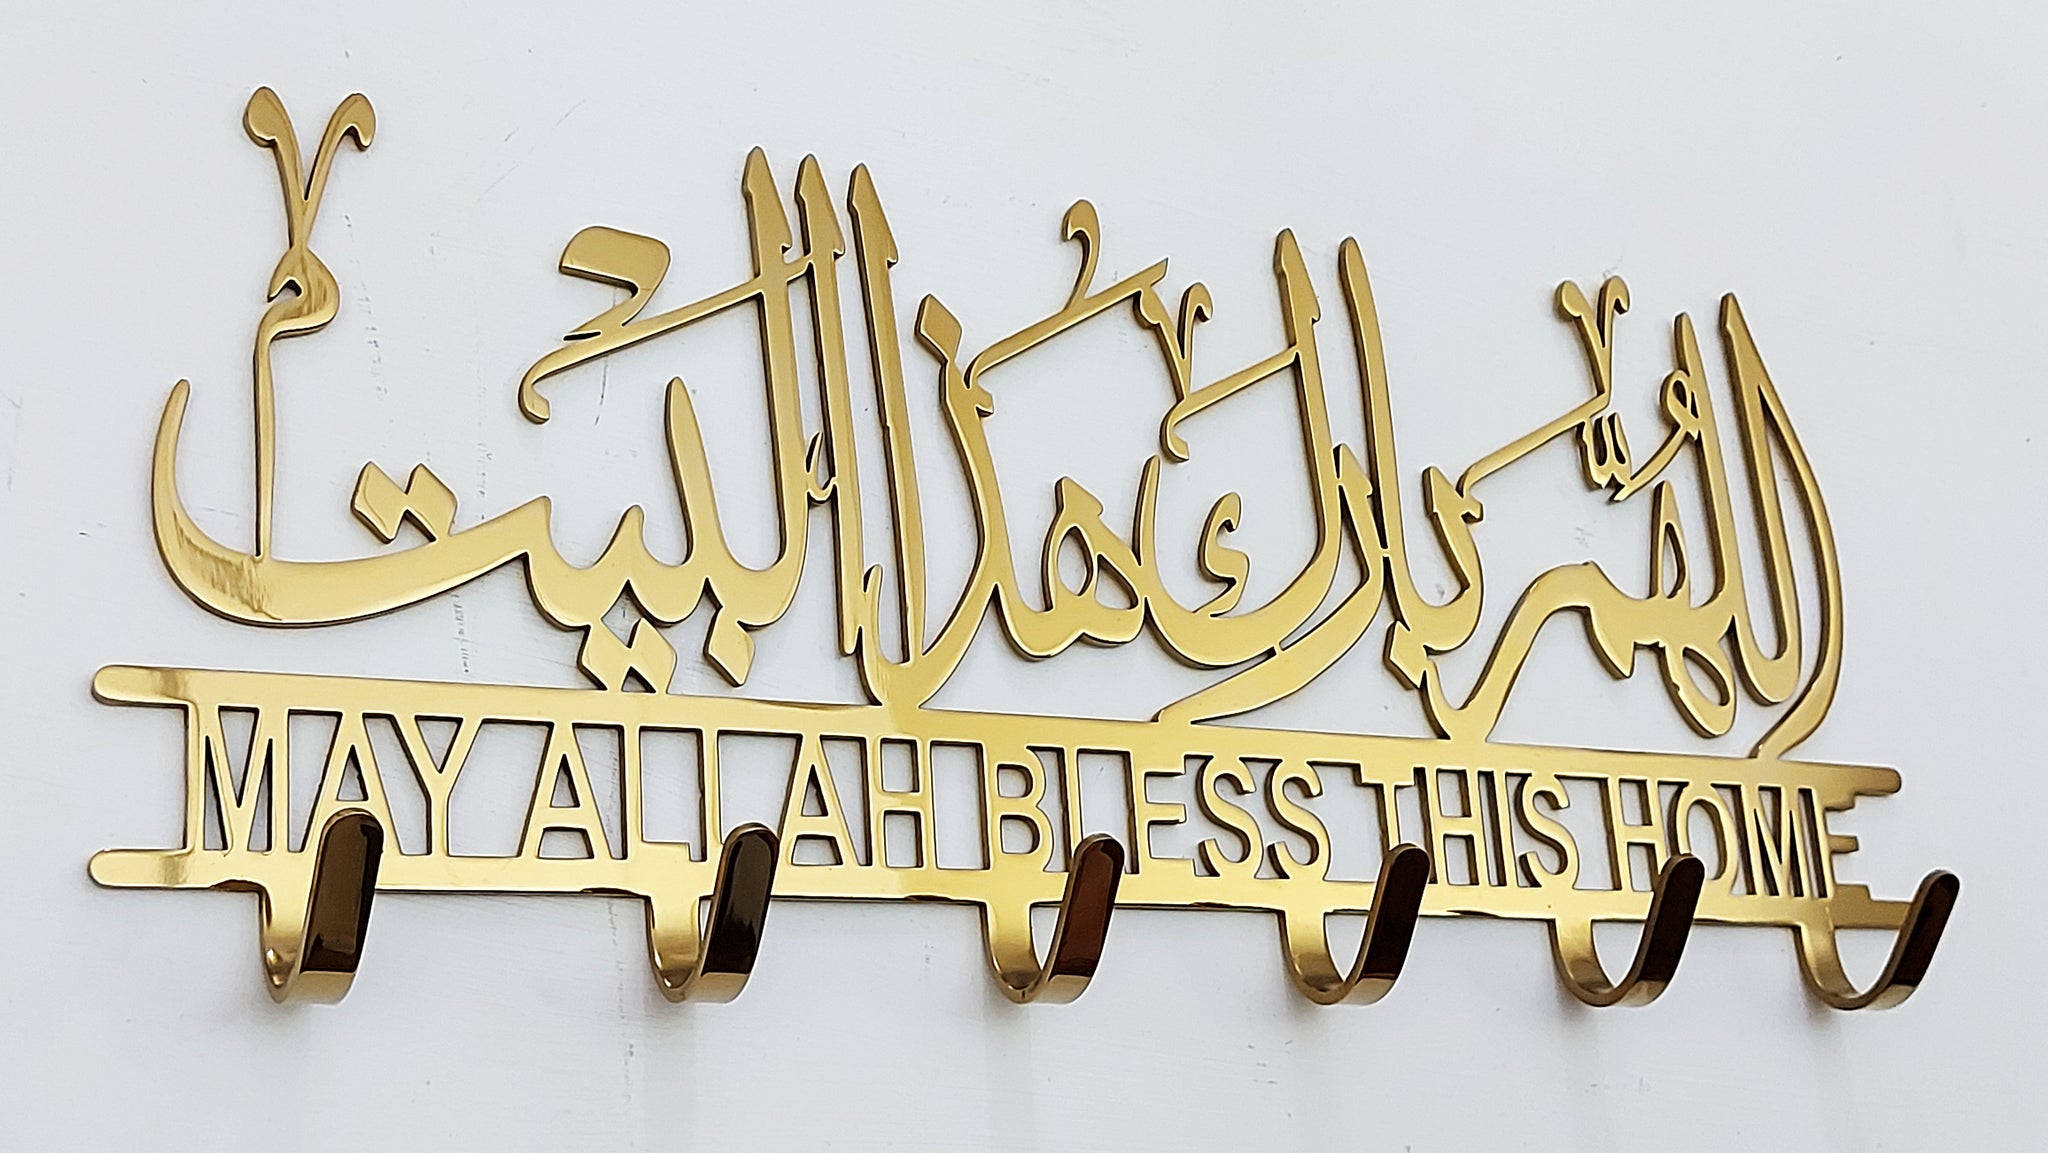 اللهم بارك هذا البيت
MAY ALLAH BLESS THIS HOME